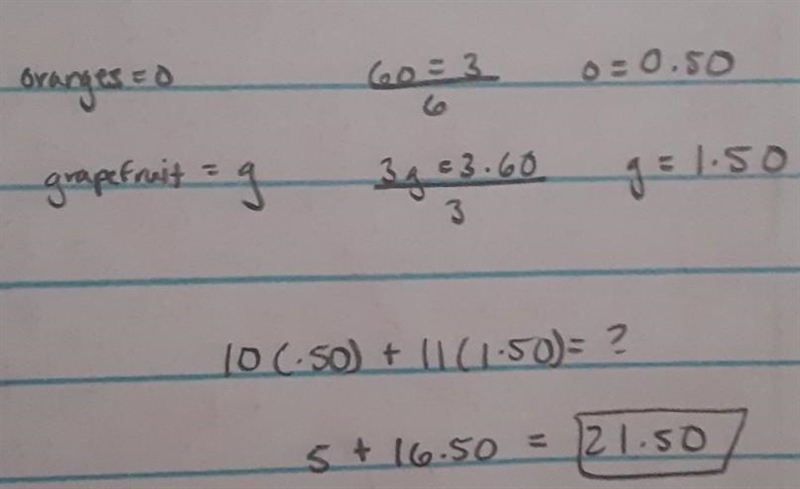 oranges = o 6o = 3 o = 0.50
6
grapefruit = g 3g = 3.60 g = 1.50
3
10(.50) + 11(1.50) = ?
5 + 16.50 = 21.50